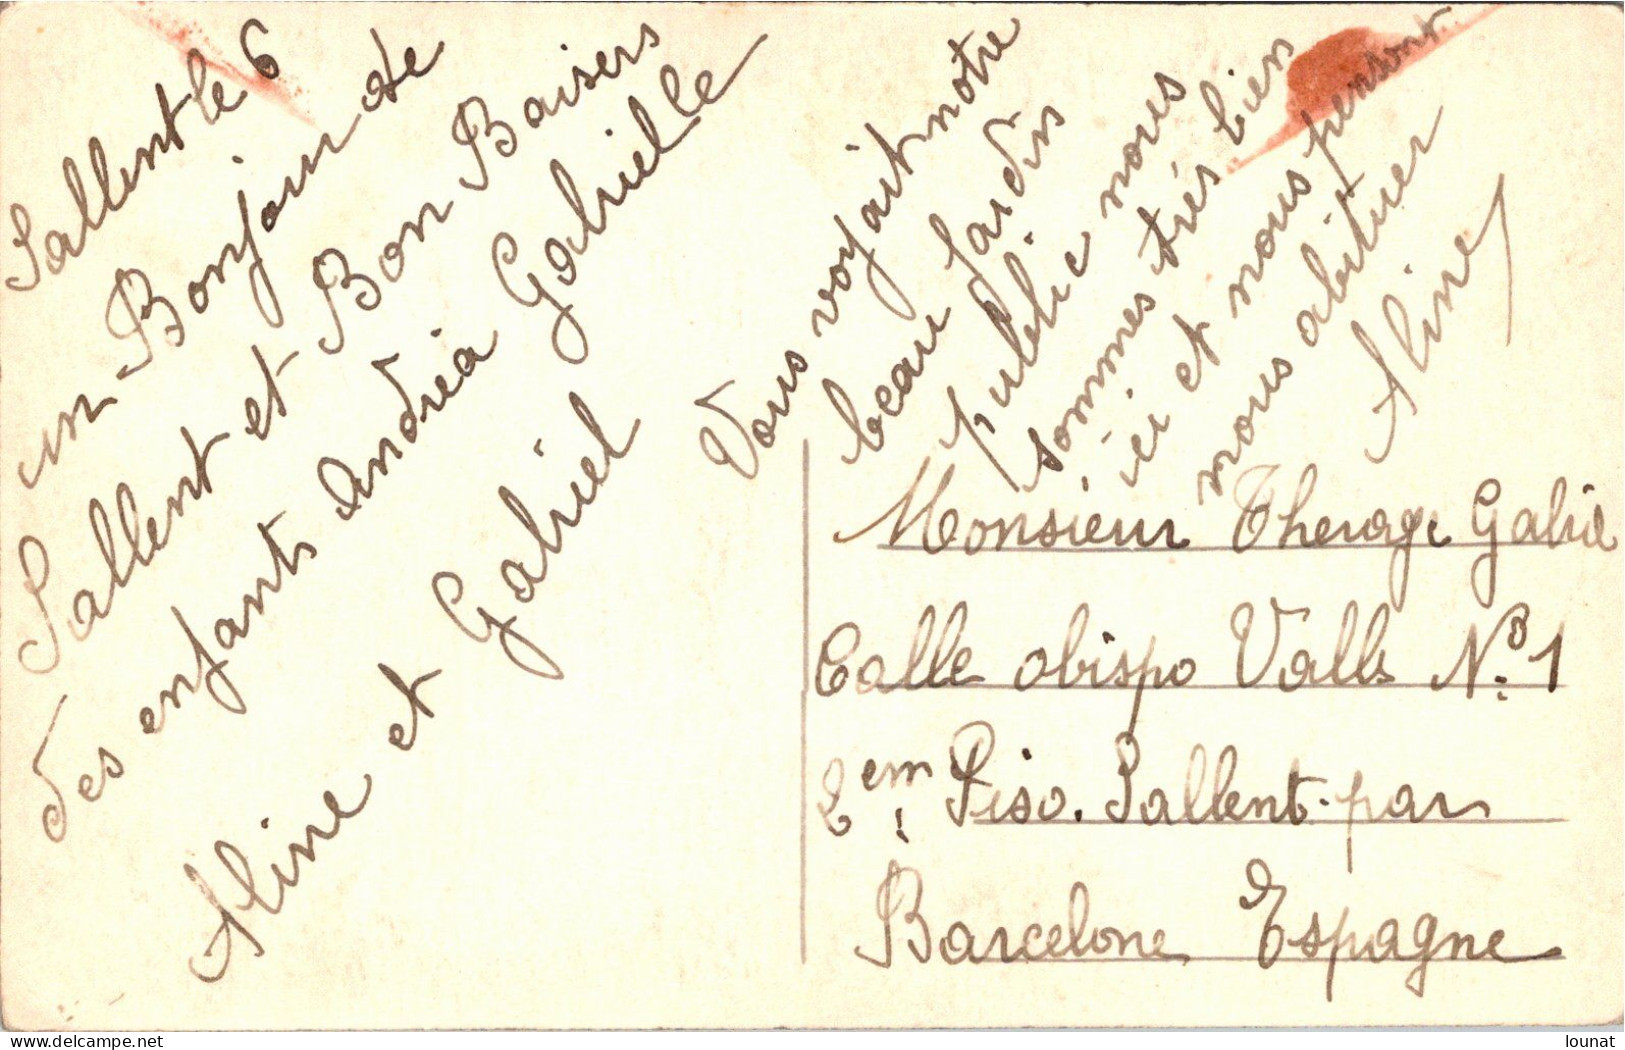 Sallent le 6
un Bonjour de
Sallent et Bon Baisers
des enfants Andréa Gabrielle
Aline et Gabriel
Vous voyait notre
beau Jardin
public nous
sommes très bien
ici et nous pensont
nous abituer
Aline
Monsieur Gabriel
Calle obispo Valls No 1
2em Piso. Sallent. par
Barcelone Espagne
delcampe.net
lounat